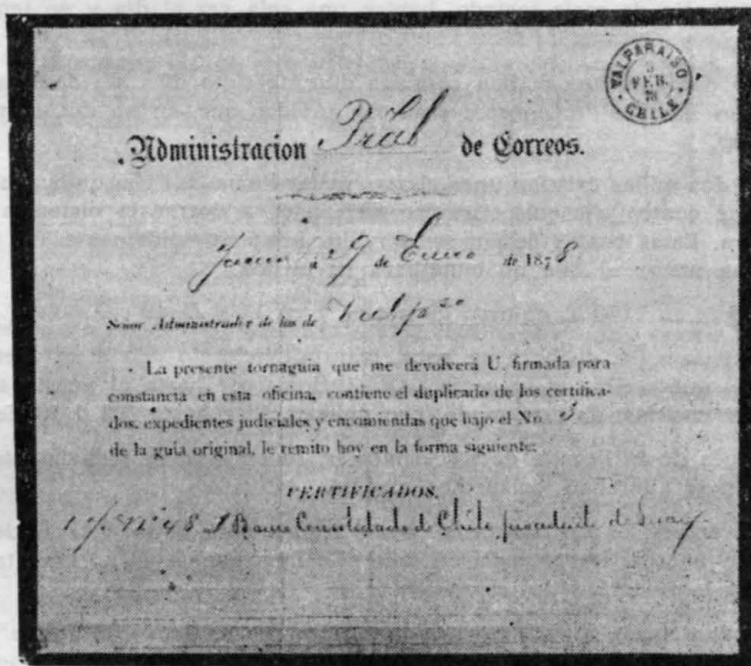 VALPARAISO
FEB.
78
CHILE
Administracion Pral de Correos.
á 29 de Enero de 1878
Señor Administrador de los de Valpso
La presente tornaguia que me devolverá U. firmada para
constancia en esta oficina, contiene el duplicado de los certifica-
dos, expedientes judiciales y encomiendas que bajo el No. 3
de la guia original, le remito hoy en la forma siguiente:
CERTIFICADOS.
No 48 Banco Consolidado de Chile procedente de